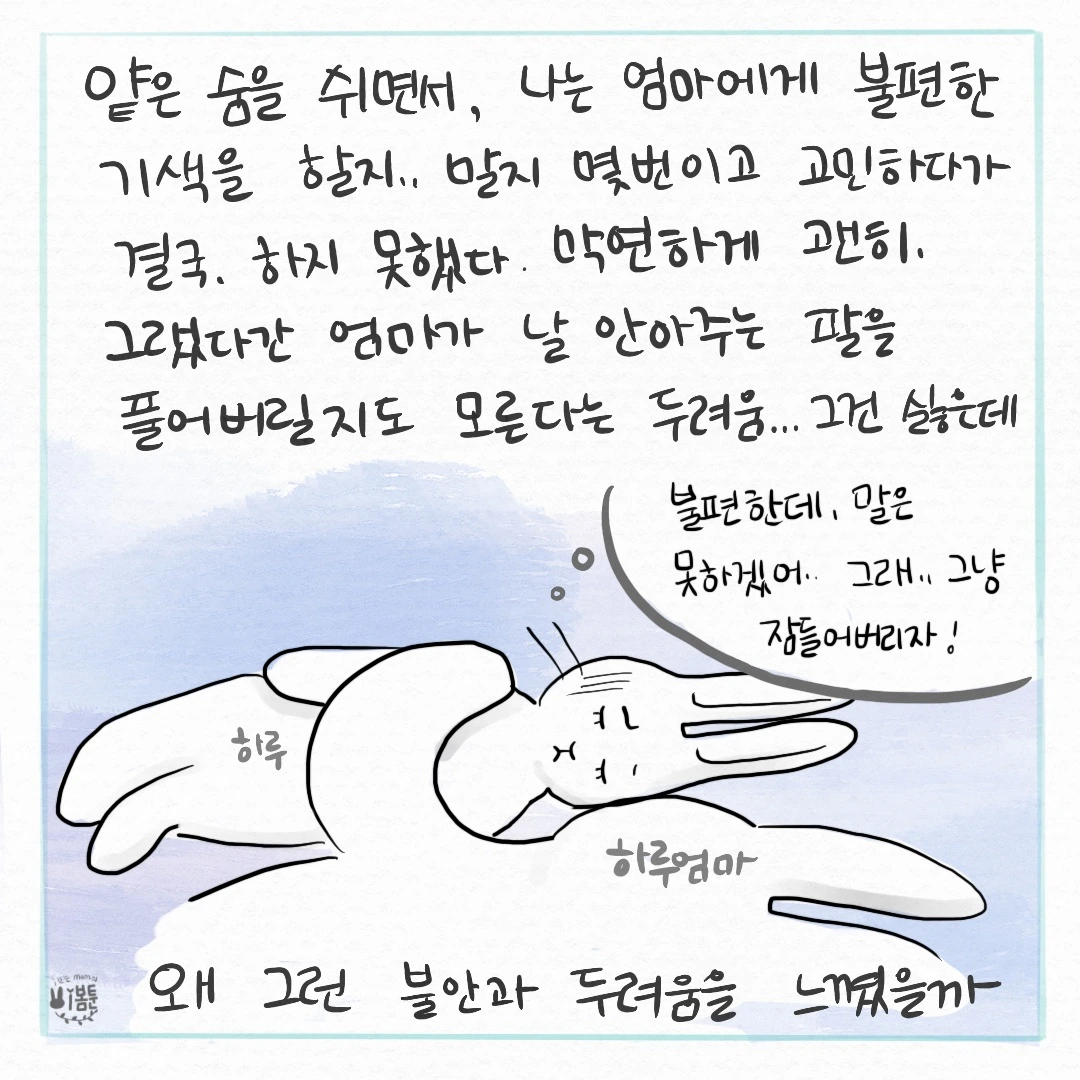 얕은 숨을 쉬면서, 나는 엄마에게 불편한
기색을 할지.. 말지 몇번이고 고민하다가
결국. 하지 못했다. 막연하게 괜히.
그랬다간 엄마가 날 안아주는 팔을
풀어버릴지도 모른다는 두려움... 그건 싫은데
불편한데. 말은
못하겠어.. 그래.. 그냥
잠들어버리자!
하루
하루엄마
왜 그런 불안과 두려움을 느꼈을까
봄툰